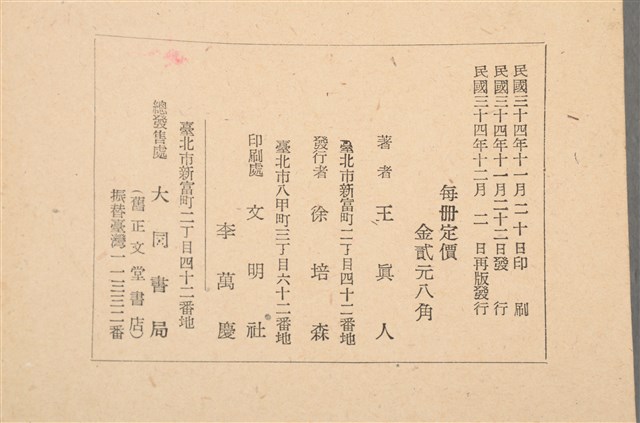 民國三十四年十一月二十日印刷
民國三十四年十一月二十二日發行
民國三十四年十二月二日再版發行
每册定價
金貳元八角
著者 王眞人
臺北市新富町二丁目四十二番地
發行者 徐培森
臺北市八甲町三丁目六十二番地
印刷處 文明社
李萬慶
臺北市新富町二丁目四十二番地
總發售處 大同書局
(舊正文堂書店)
振替臺灣一一三三二番